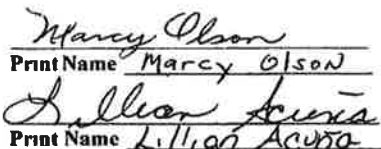 Marcy Olson
Print Name Marcy Olson
Lillian Acuña
Print Name Lillian Acuña